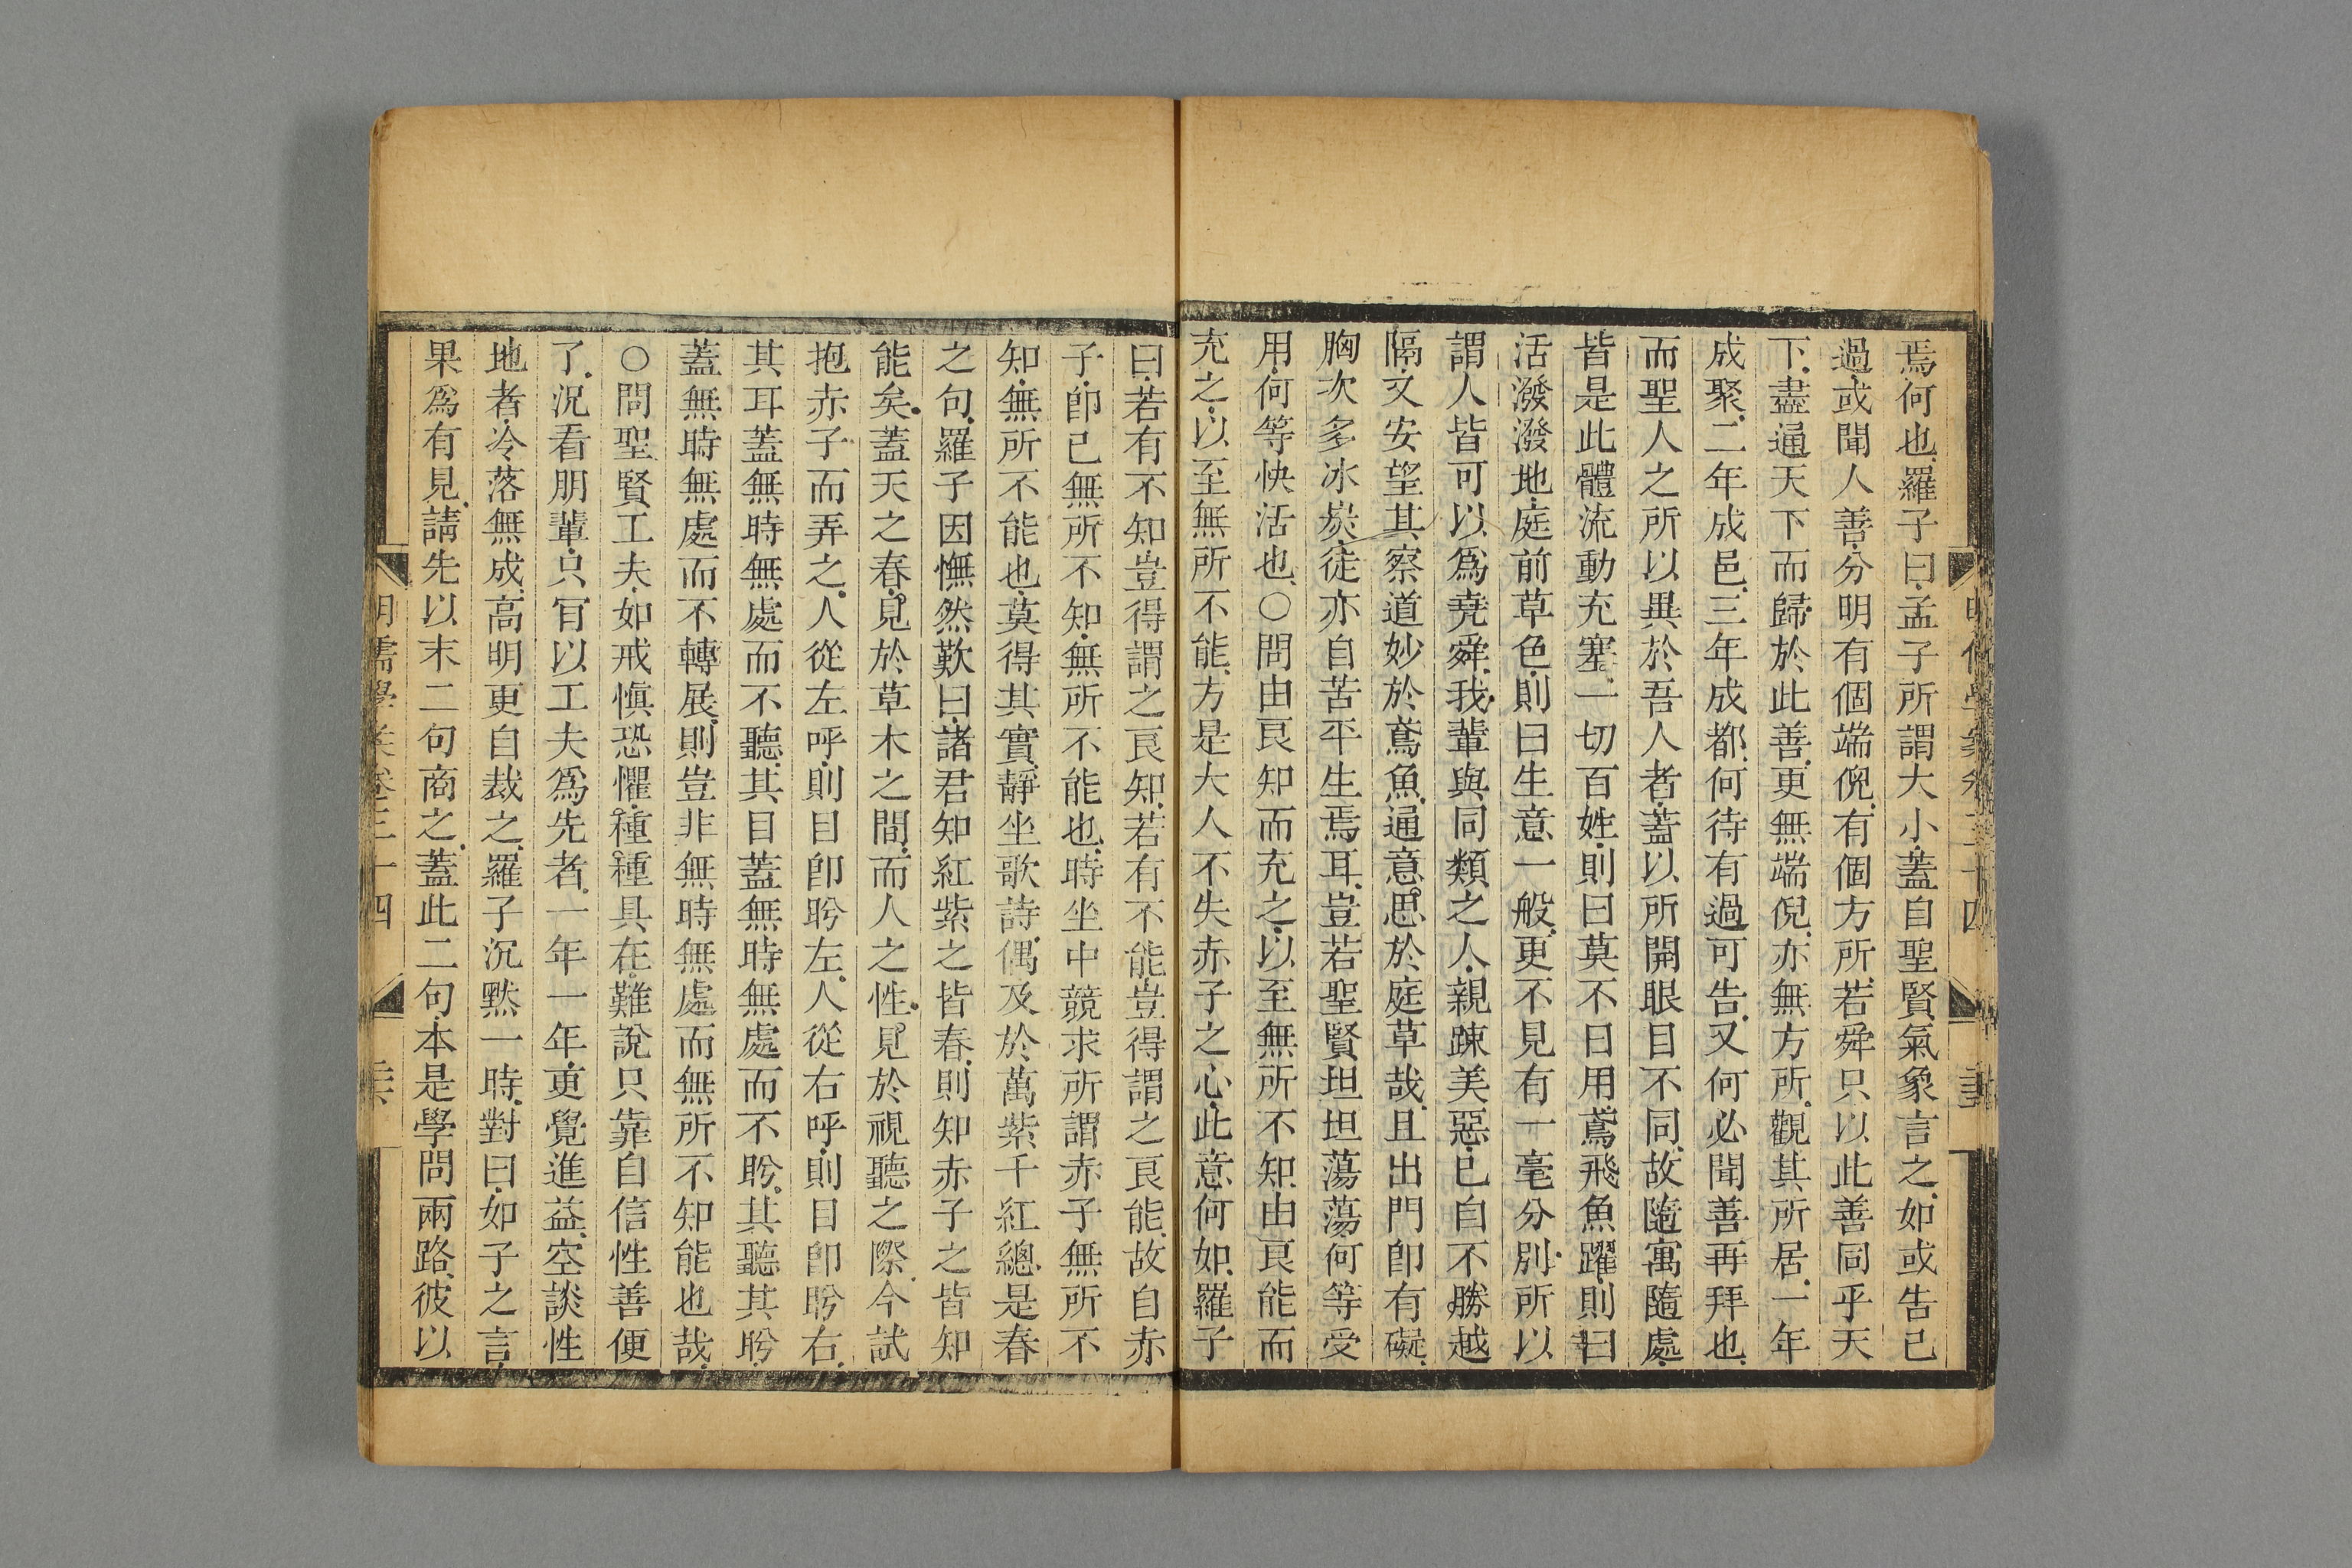 焉何也羅子曰孟子所謂大小蓋自聖賢氣象言之如或告己
過或聞人善分明有個端倪有個方所若舜只以此善同乎天
下盡通天下而歸於此善更無端倪亦無方所觀其所居一年
成聚二年成邑三年成都何待有過可告又何必聞善再拜也
而聖人之所以異於吾人者蓋以所開眼目不同故隨寓隨處
皆是此體流動充塞一切百姓則曰莫不日用鳶飛魚躍則曰
活潑潑地庭前草色則曰生意一般更不見有一毫分別所以
謂人皆可以為堯舜我輩與同類之人親踈美惡已自不勝越
隔又安望其察道妙於鳶魚通意思於庭草哉且出門即有礙
胸次多冰炭徒亦自苦平生焉耳豈若聖賢坦坦蕩蕩何等受
用何等快活也○問由良知而充之以至無所不知由良能而
充之以至無所不能方是大人不失赤子之心此意何如羅子
曰若有不知豈得謂之良知若有不能豈得謂之良能故自赤
子即已無所不知無所不能也時坐中競求所謂赤子無所不
知無所不能也莫得其實靜坐歌詩偶及於萬紫千紅總是春
之句羅子因憮然歎曰諸君知紅紫之皆春則知赤子之皆知
能矣蓋天之春見於草木之間而人之性見於視聽之際今試
抱赤子而弄之人從左呼則目即盻左人從右呼則目即盻右
其耳蓋無時無處而不聽其目蓋無時無處而不盻其聽其盻
蓋無時無處而不轉展則豈非無時無處而無所不知能也哉
○問聖賢工夫如戒慎恐懼種種具在難說只靠自信性善便
了況看朋輩只肎以工夫為先者一年一年更覺進益空談性
地者冷落無成高明更自裁之羅子沉默一時對曰如子之言
果為有見請先以末二句商之蓋此二句本是學問兩路彼以
明儒學案卷三十四